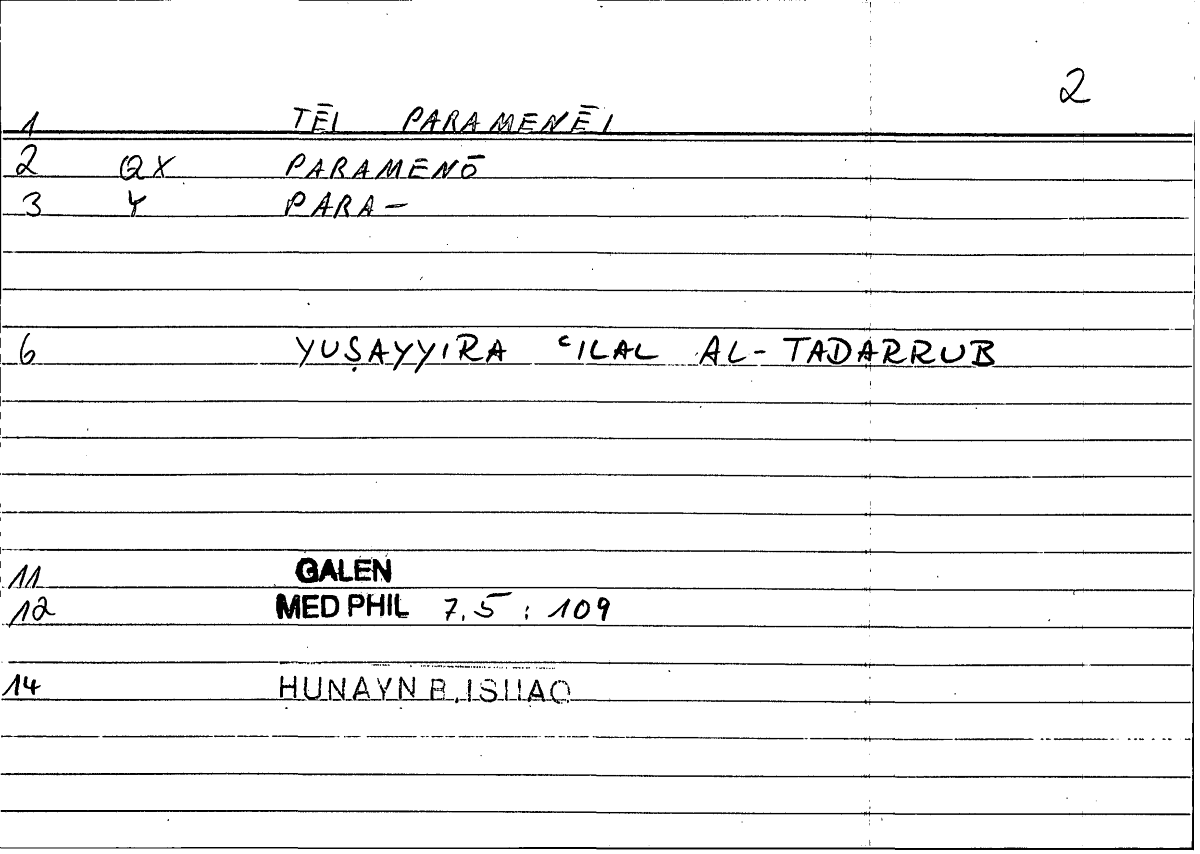 2
1 TĒI PARAMENĒI
2 QX PARAMENŌ
3 Y PARA-
6 YUṢAYYIRA ʿILAL AL-TADARRUB
11 GALEN
12 MED PHIL 7.5 : 109
14 ḤUNAYN B. ISḤAQ